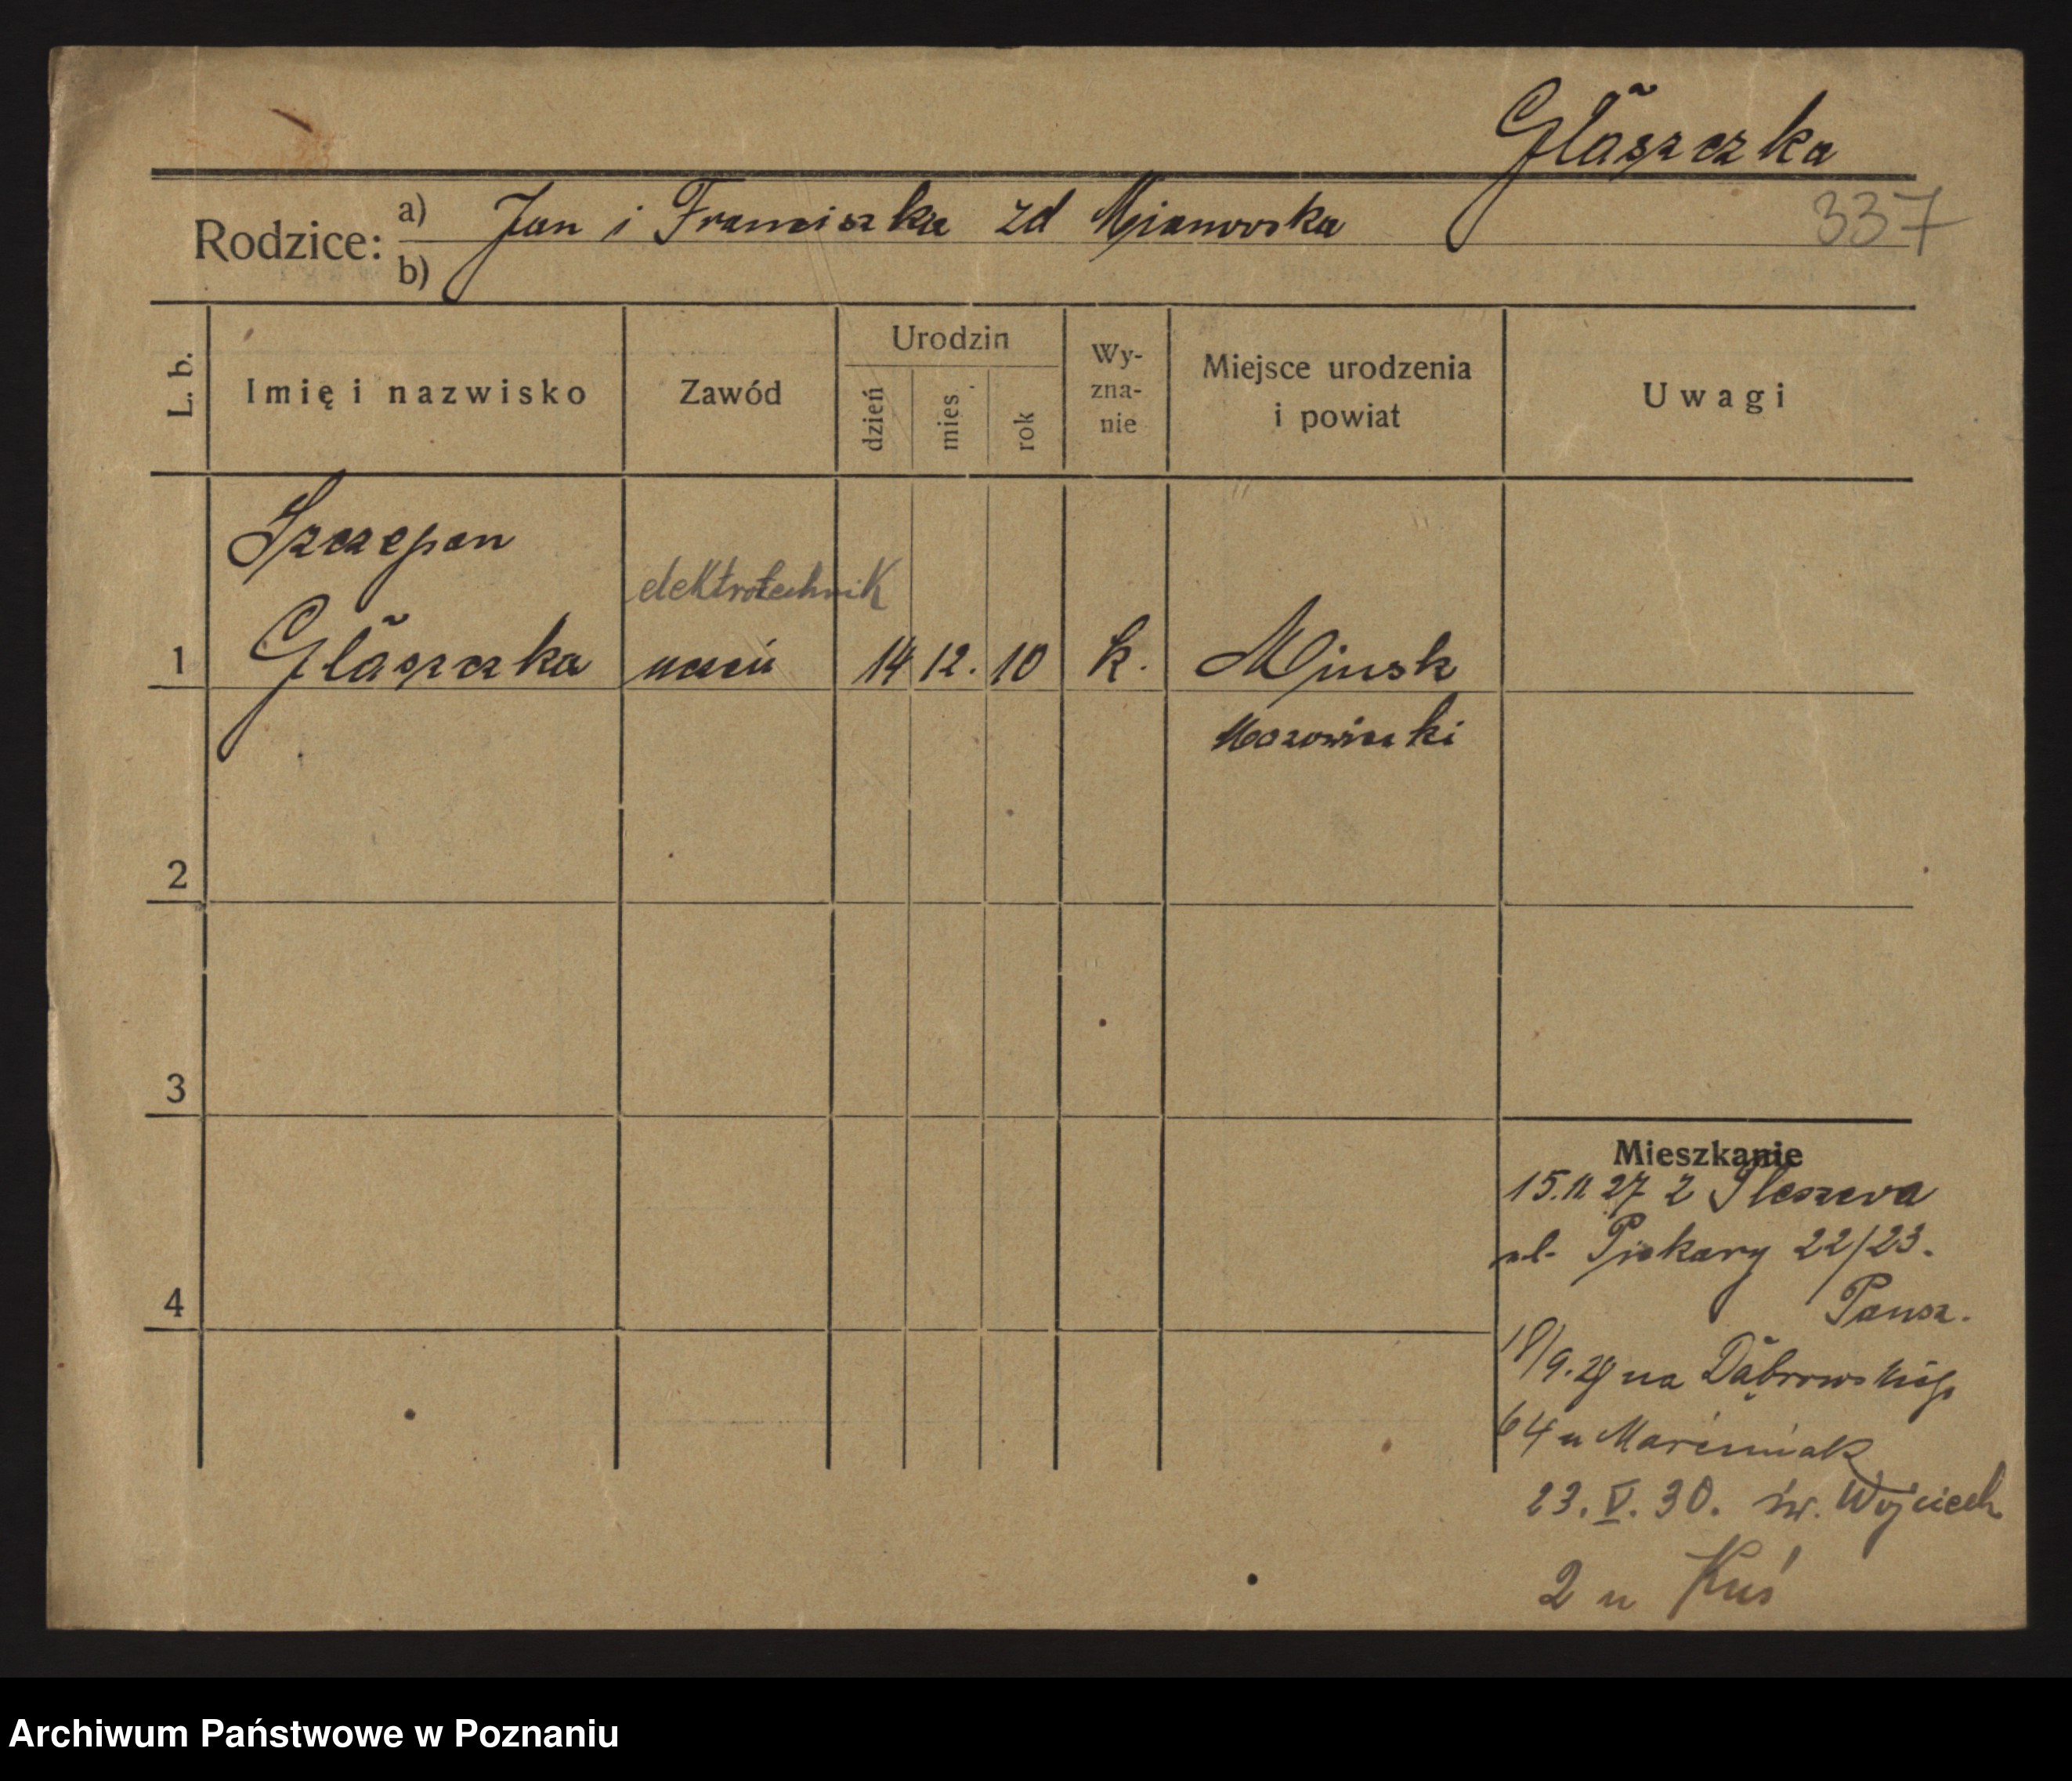 Głaszczka
337
Rodzice: a) Jan i Franciszka zd Mianowska
b)
L. b.
Imię i nazwisko
Zawód
Urodzin
dzień
mies.
rok
Wy-
zna-
nie
Miejsce urodzenia
i powiat
Uwagi
Szczepan
elektrotechnik
1 Głaszczka uczeń 14 12. 10 k. Minsk
Mazowiecki
2
3
4
Mieszkanie
15.11 27 z Pleszewa
ul. Piekary 22/23.
Pansz.
18/9.29 na Dąbrowskiego
64 u Marciniak
23.V.30. św. Wojciech
2 u Kuś
Archiwum Państwowe w Poznaniu